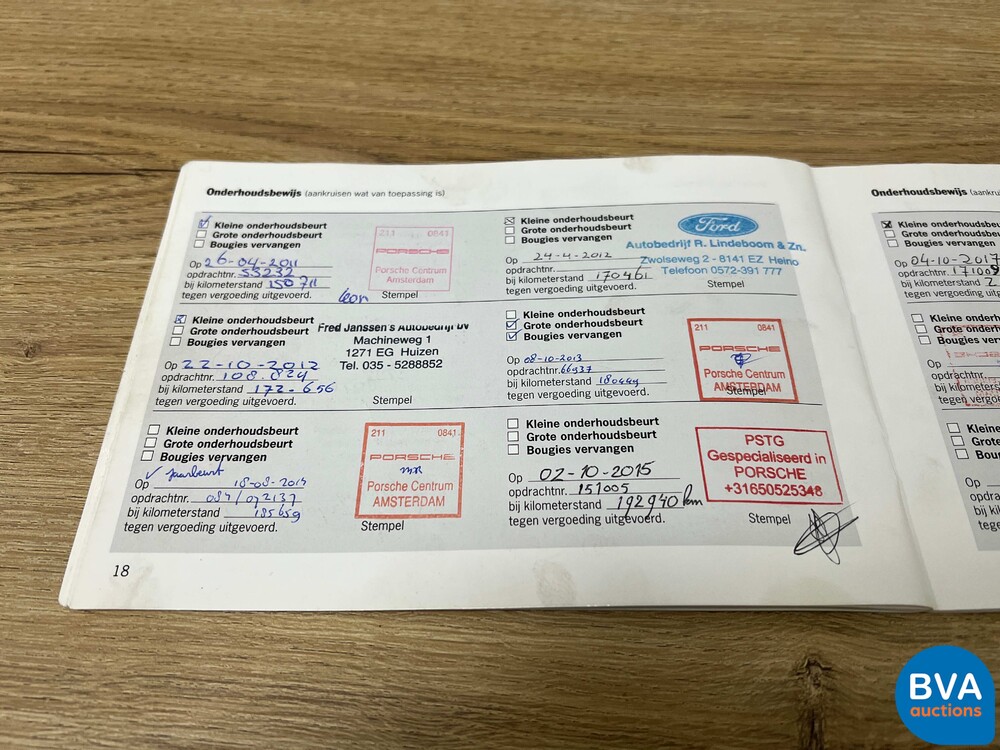 Onderhoudsbewijs (aankruisen wat van toepassing is)
Kleine onderhoudsbeurt
Grote onderhoudsbeurt
Bougies vervangen
Op 26-04-2011
opdrachtnr. 53232
bij kilometerstand 150711
tegen vergoeding uitgevoerd.
Stempel
211 0841
PORSCHE
Porsche Centrum
Amsterdam
Kleine onderhoudsbeurt
Grote onderhoudsbeurt
Bougies vervangen
Op 24-4-2012
opdrachtnr.
bij kilometerstand 170461
tegen vergoeding uitgevoerd.
Stempel
Ford
Autobedrijf R. Lindeboom & Zn.
Zwolseweg 2 - 8141 EZ Heino
Telefoon 0572-391 777
Kleine onderhoudsbeurt
Grote onderhoudsbeurt
Bougies vervangen
Op 22-10-2012
opdrachtnr. 108.824
bij kilometerstand 172-656
tegen vergoeding uitgevoerd.
Stempel
Fred Janssen's Autobedrijf bv
Machineweg 1
1271 EG Huizen
Tel. 035 - 5288852
Kleine onderhoudsbeurt
Grote onderhoudsbeurt
Bougies vervangen
Op 08-10-2013
opdrachtnr. 66537
bij kilometerstand 180449
tegen vergoeding uitgevoerd.
Stempel
211 0841
PORSCHE
Porsche Centrum
AMSTERDAM
Kleine onderhoudsbeurt
Grote onderhoudsbeurt
Bougies vervangen
Op 18-08-2014
opdrachtnr. 084/072137
bij kilometerstand 185659
tegen vergoeding uitgevoerd.
Stempel
211 0841
PORSCHE
Porsche Centrum
AMSTERDAM
Kleine onderhoudsbeurt
Grote onderhoudsbeurt
Bougies vervangen
Op 02-10-2015
opdrachtnr. 151005
bij kilometerstand 192940 km
tegen vergoeding uitgevoerd.
Stempel
PSTG
Gespecialiseerd in
PORSCHE
+31650525348
18
Onderhoudsbewijs
Kleine onderhoudsb
Grote onderhoudsbe
Bougies vervangen
Op 04-10-2017
opdrachtnr. 171009
bij kilometerstand 2
tegen vergoeding
Kleine onderh
Grote onderho
Bougies verva
Op
opdrachtnr.
bij kilometers
tegen vergoe
Kleine onde
Grote onde
Op
BVA
auctions